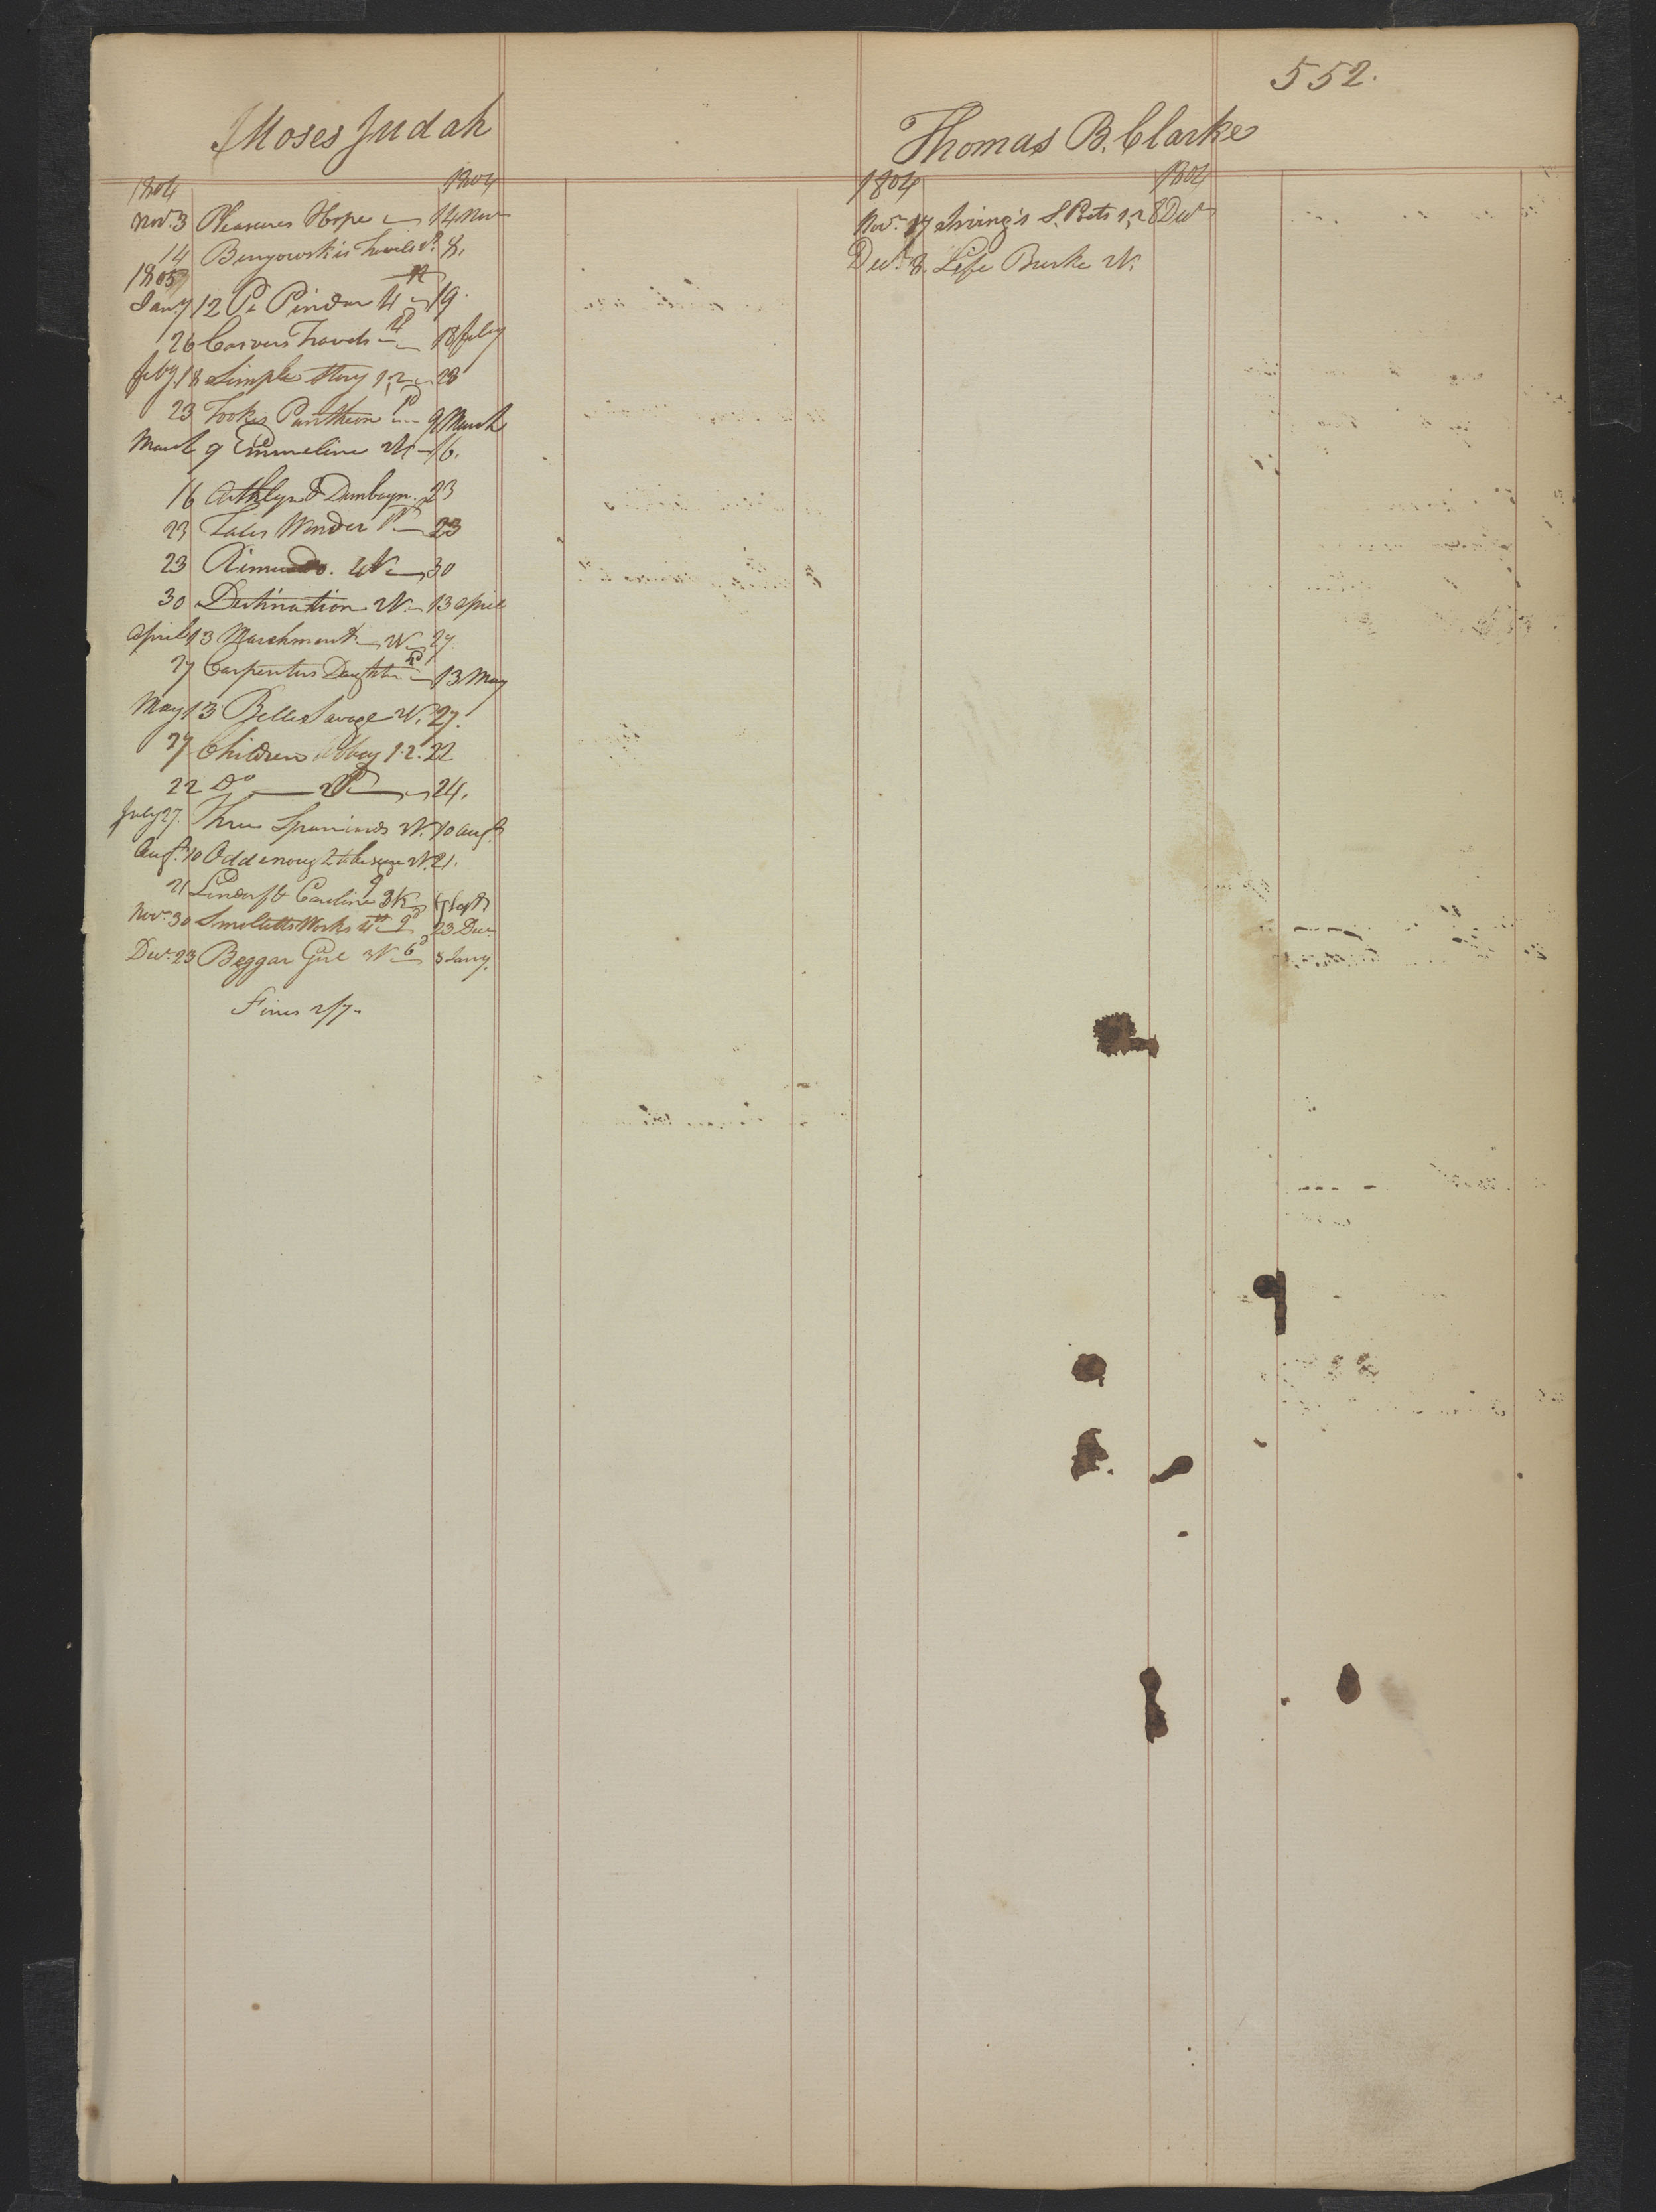 552.
Moses Judah
1804 1804
Nov. 3 Pleasures Hope 14 Nov
14 Benyowskis Travels 8.
1805
Jany 12 P. Pindar 4 19.
26 Carvers Travels 18 feby
feby. 18 Simple Story 1,2 23
23 Tooke's Pantheon 9 March
March 9 Emmeline 16.
16 Athlyn & Dunbayn. 23
23 Tales Wonder 23
23 30
30 Destination 13 april
april 13 Marchmont 27.
27 Carpenters Daughter 13 May
May 13 Belle Savage 27.
27 Children Abbey 1.2. 22
22 Do 24.
July 27. Three Spaniards 10 augt.
Augt. 10 Odd enough 21.
21 Lindorf & Caroline Sept
Nov. 30 Smolletts Works 23 Dec
Dec. 23 Beggar Girl 3 Jany.
Fines 2/7.
Thomas B. Clarke
1804 1804
Nov. 17 Irving's S. Poets 1,2 8 Decr
Decr. 8. Life Burke